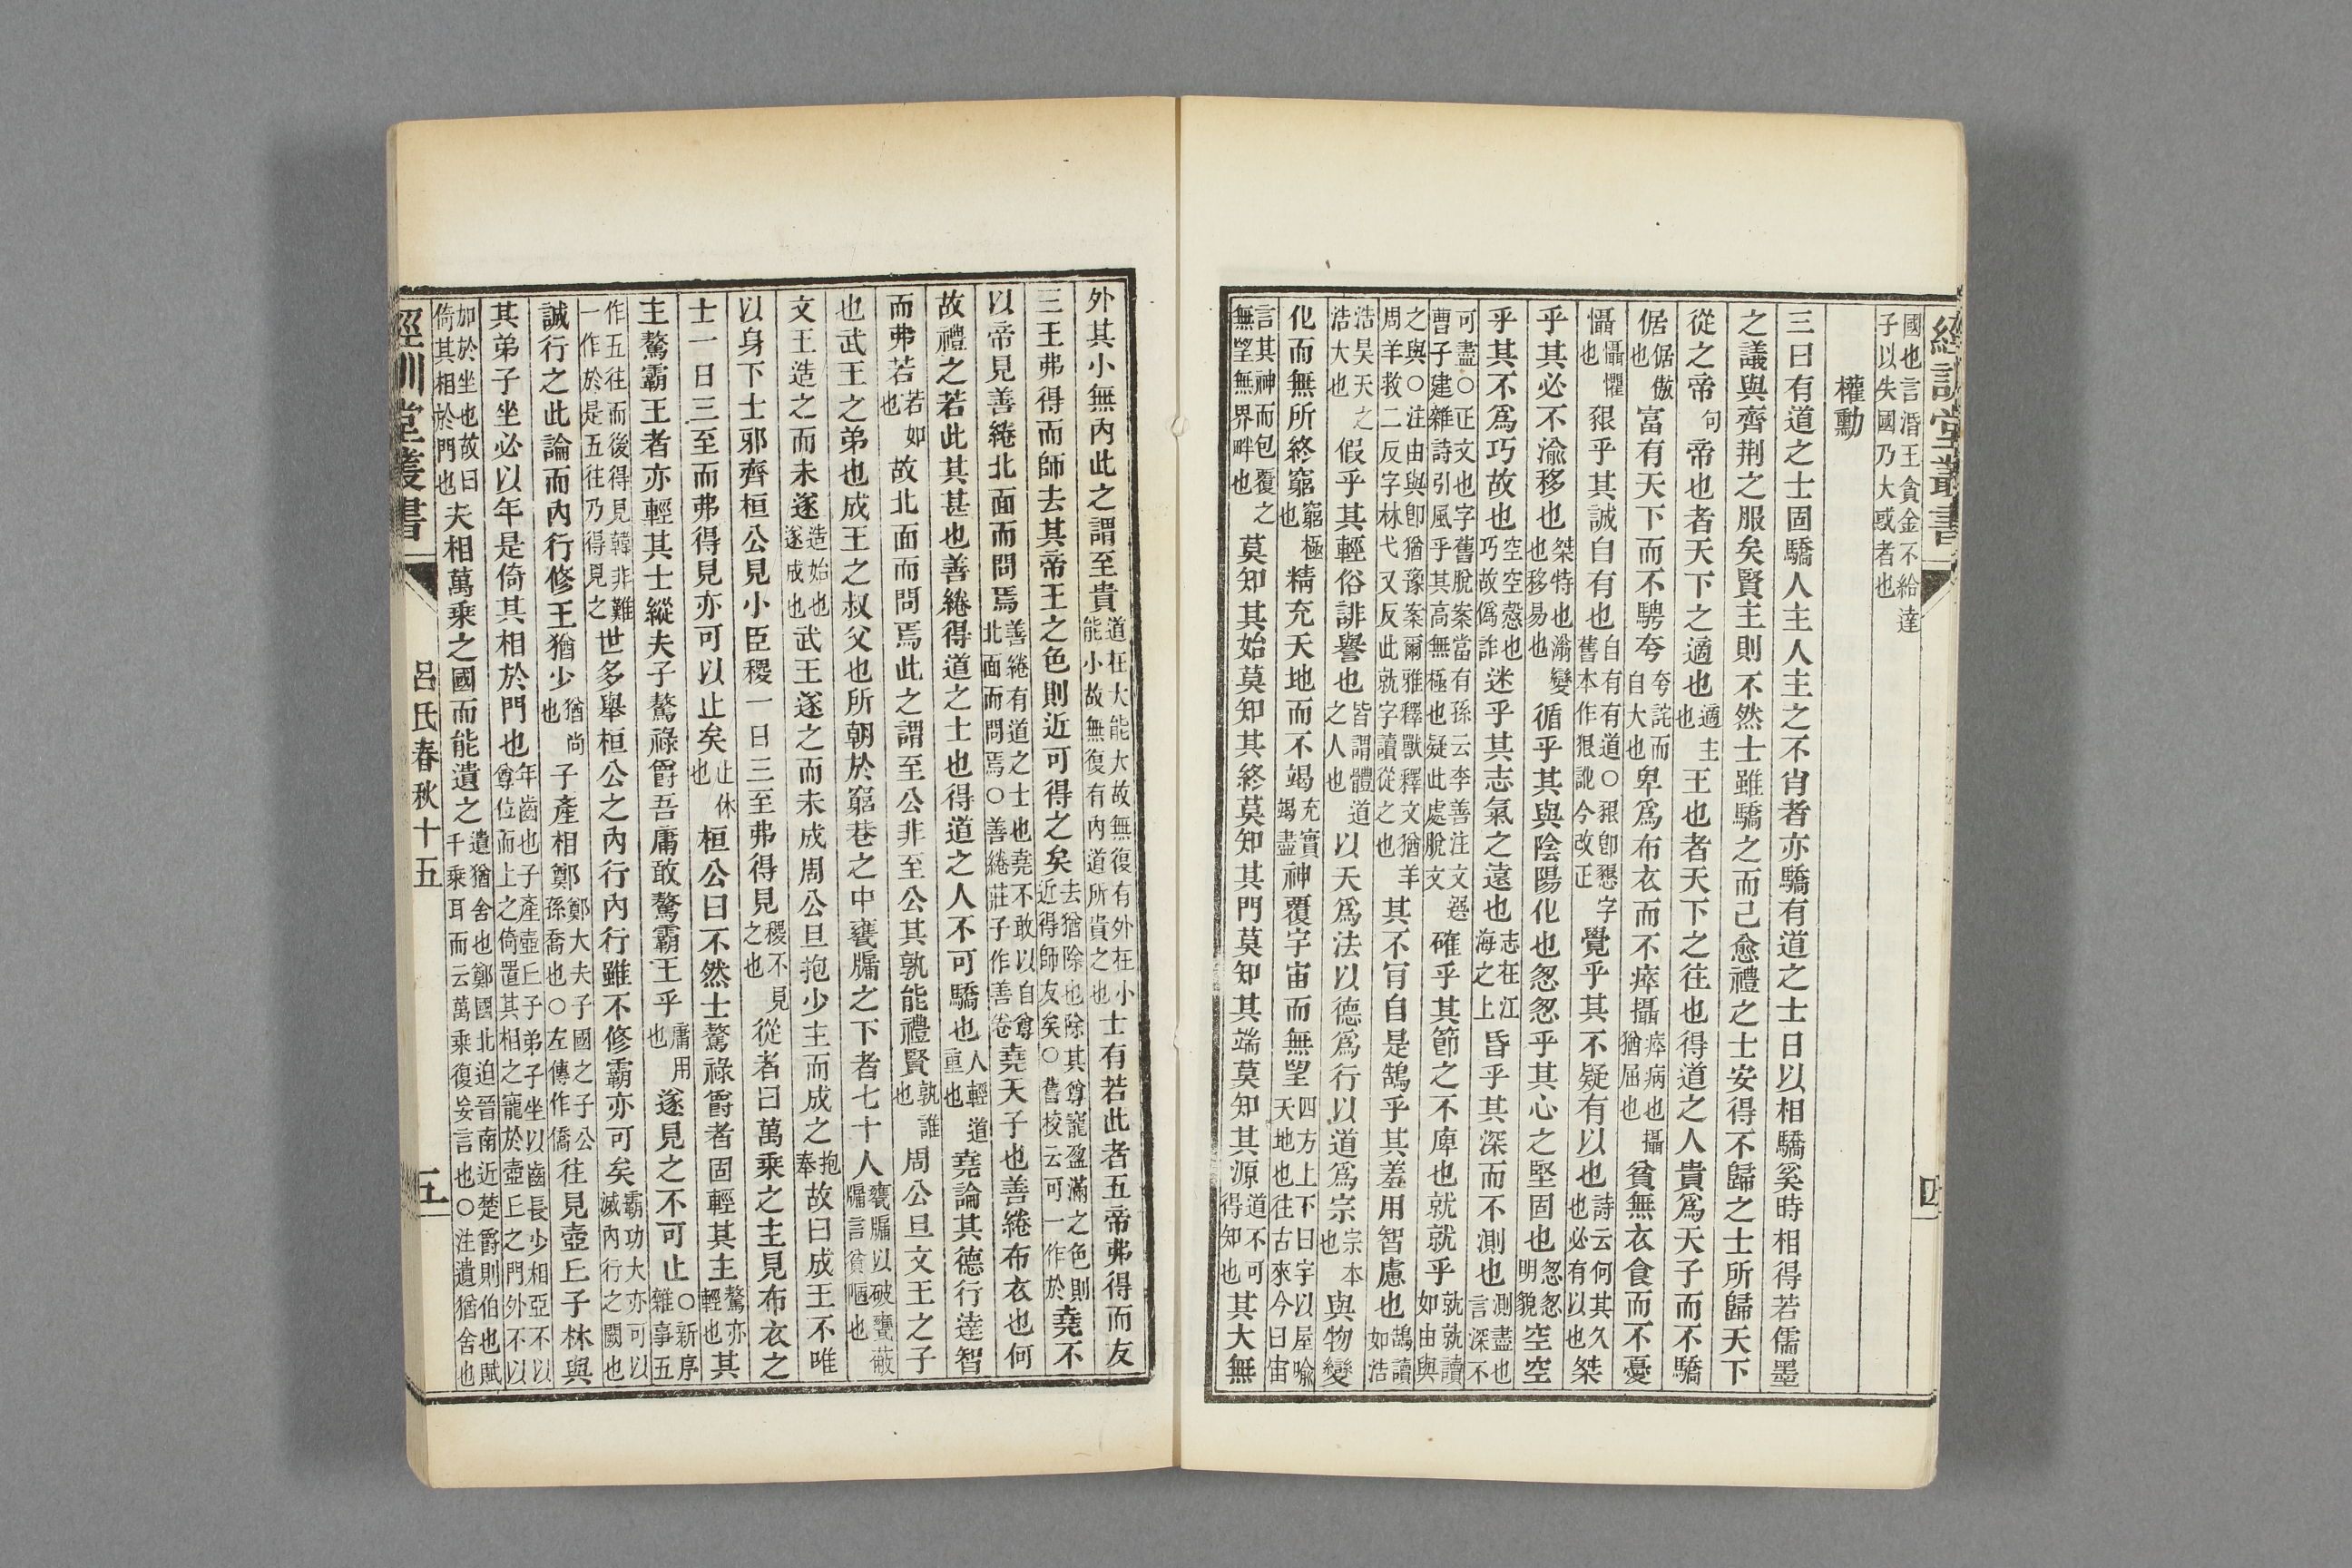 經訓堂叢書
四
國也言湣王貪金不給達子以失國乃大惑者也
權勳
三曰有道之士固驕人主人主之不肖者亦驕有道之士日以相驕奚時相得若儒墨
之議與齊荆之服矣賢主則不然士雖驕之而己愈禮之士安得不歸之士所歸天下
從之帝句帝也者天下之適也適主也王也者天下之往也得道之人貴爲天子而不驕
倨倨傲也富有天下而不騁夸夸詫而自大也卑爲布衣而不瘁攝瘁病也攝猶屈也貧無衣食而不憂
懾懾懼也狠乎其誠自有也自有有道○狠卽懇字舊本作狠訛今改正覺乎其不疑有以也詩云何其久也必有以也桀
乎其必不渝移也桀特也渝變也移易也循乎其與陰陽化也怱怱乎其心之堅固也怱怱明貌空空
乎其不爲巧故也空空慤也巧故僞詐迷乎其志氣之遠也志在江海之上昏乎其深而不測也測盡也言深不
可盡○正文也字舊脫案當有孫云李善注文選曹子建雜詩引風乎其高無極也疑此處脫文確乎其節之不庳也就就乎就就讀如由與
之與○注由與卽猶豫案爾雅釋獸釋文猶羊周羊救二反字林弋又反此就字讀從之也其不肯自是鵠乎其羞用智慮也鵠讀如浩
浩昊天之浩大也假乎其輕俗誹譽也皆謂體道之人也以天爲法以德爲行以道爲宗宗本也與物變
化而無所終窮窮極也精充天地而不竭充實竭盡神覆宇宙而無朢四方上下曰宇以屋喻天地也往古來今曰宙
言其神而包覆之無朢無界畔也莫知其始莫知其終莫知其門莫知其端莫知其源道不可得知也其大無
外其小無內此之謂至貴道在大能大故無復有外在小能小故無復有內道所貴之也士有若此者五帝弗得而友
三王弗得而師去其帝王之色則近可得之矣去猶除也除其尊寵盈滿之色則近得師友矣○舊校云可一作於堯不
以帝見善綣北面而問焉善綣有道之士也堯不敢以自尊北面而問焉○善綣莊子作善卷堯天子也善綣布衣也何
故禮之若此其甚也善綣得道之士也得道之人不可驕也人輕道重也堯論其德行達智
而弗若若如也故北面而問焉此之謂至公非至公其孰能禮賢孰誰也周公旦文王之子
也武王之弟也成王之叔父也所朝於窮巷之中甕牖之下者七十人甕牖以破甕蔽牖言貧陋也
文王造之而未遂造始也遂成也武王遂之而未成周公旦抱少主而成之抱奉故曰成王不唯
以身下士邪齊桓公見小臣稷一日三至弗得見稷不見之也從者曰萬乘之主見布衣之
士一日三至而弗得見亦可以止矣止休也桓公曰不然士驁祿爵者固輕其主驁亦輕也其
主驁霸王者亦輕其士縱夫子驁祿爵吾庸敢驁霸王乎庸用也遂見之不可止○新序雜事五
作五往而後得見韓非難一作於是五往乃得見之世多舉桓公之內行內行雖不修霸亦可矣霸功大亦可以滅內行之闕也
誠行之此論而內行修王猶少猶尚也子產相鄭鄭大夫子國之子公孫喬也○左傳作僑往見壺丘子林與
其弟子坐必以年是倚其相於門也年齒也子產壺丘子弟子坐以齒長少相亞不以尊位而上之倚置其相之寵於壺丘之門外不以
加於坐也故曰倚其相於門也夫相萬乘之國而能遺之遺猶舍也鄭國北迫晉南近楚爵則伯也賦千乘耳而云萬乘復妄言也○注遺猶舍也
經訓堂叢書
呂氏春秋十五
五